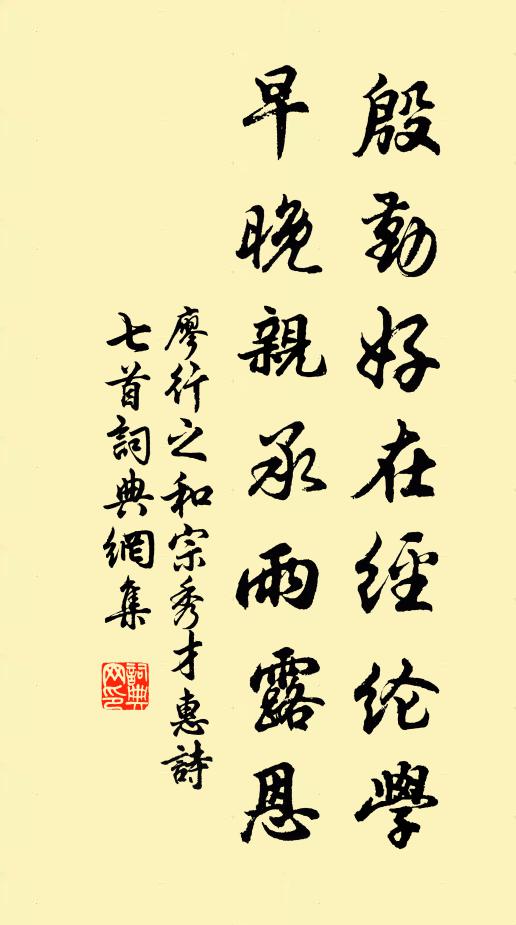 殷勤好在經纶學
早晚親承雨露恩
廖行之和宗秀才惠詩
七首詞典網集
詞典网印